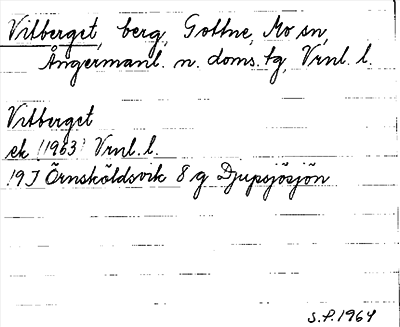 Vitberget, berg, Gottne, Mo sn,
Ångermanl. n. doms. tg, Vrnl. l.
Vitberget
ek (1963) Vrnl. l.
19J Örnsköldsvik 8 g Djupsjösjön
S.P. 1964